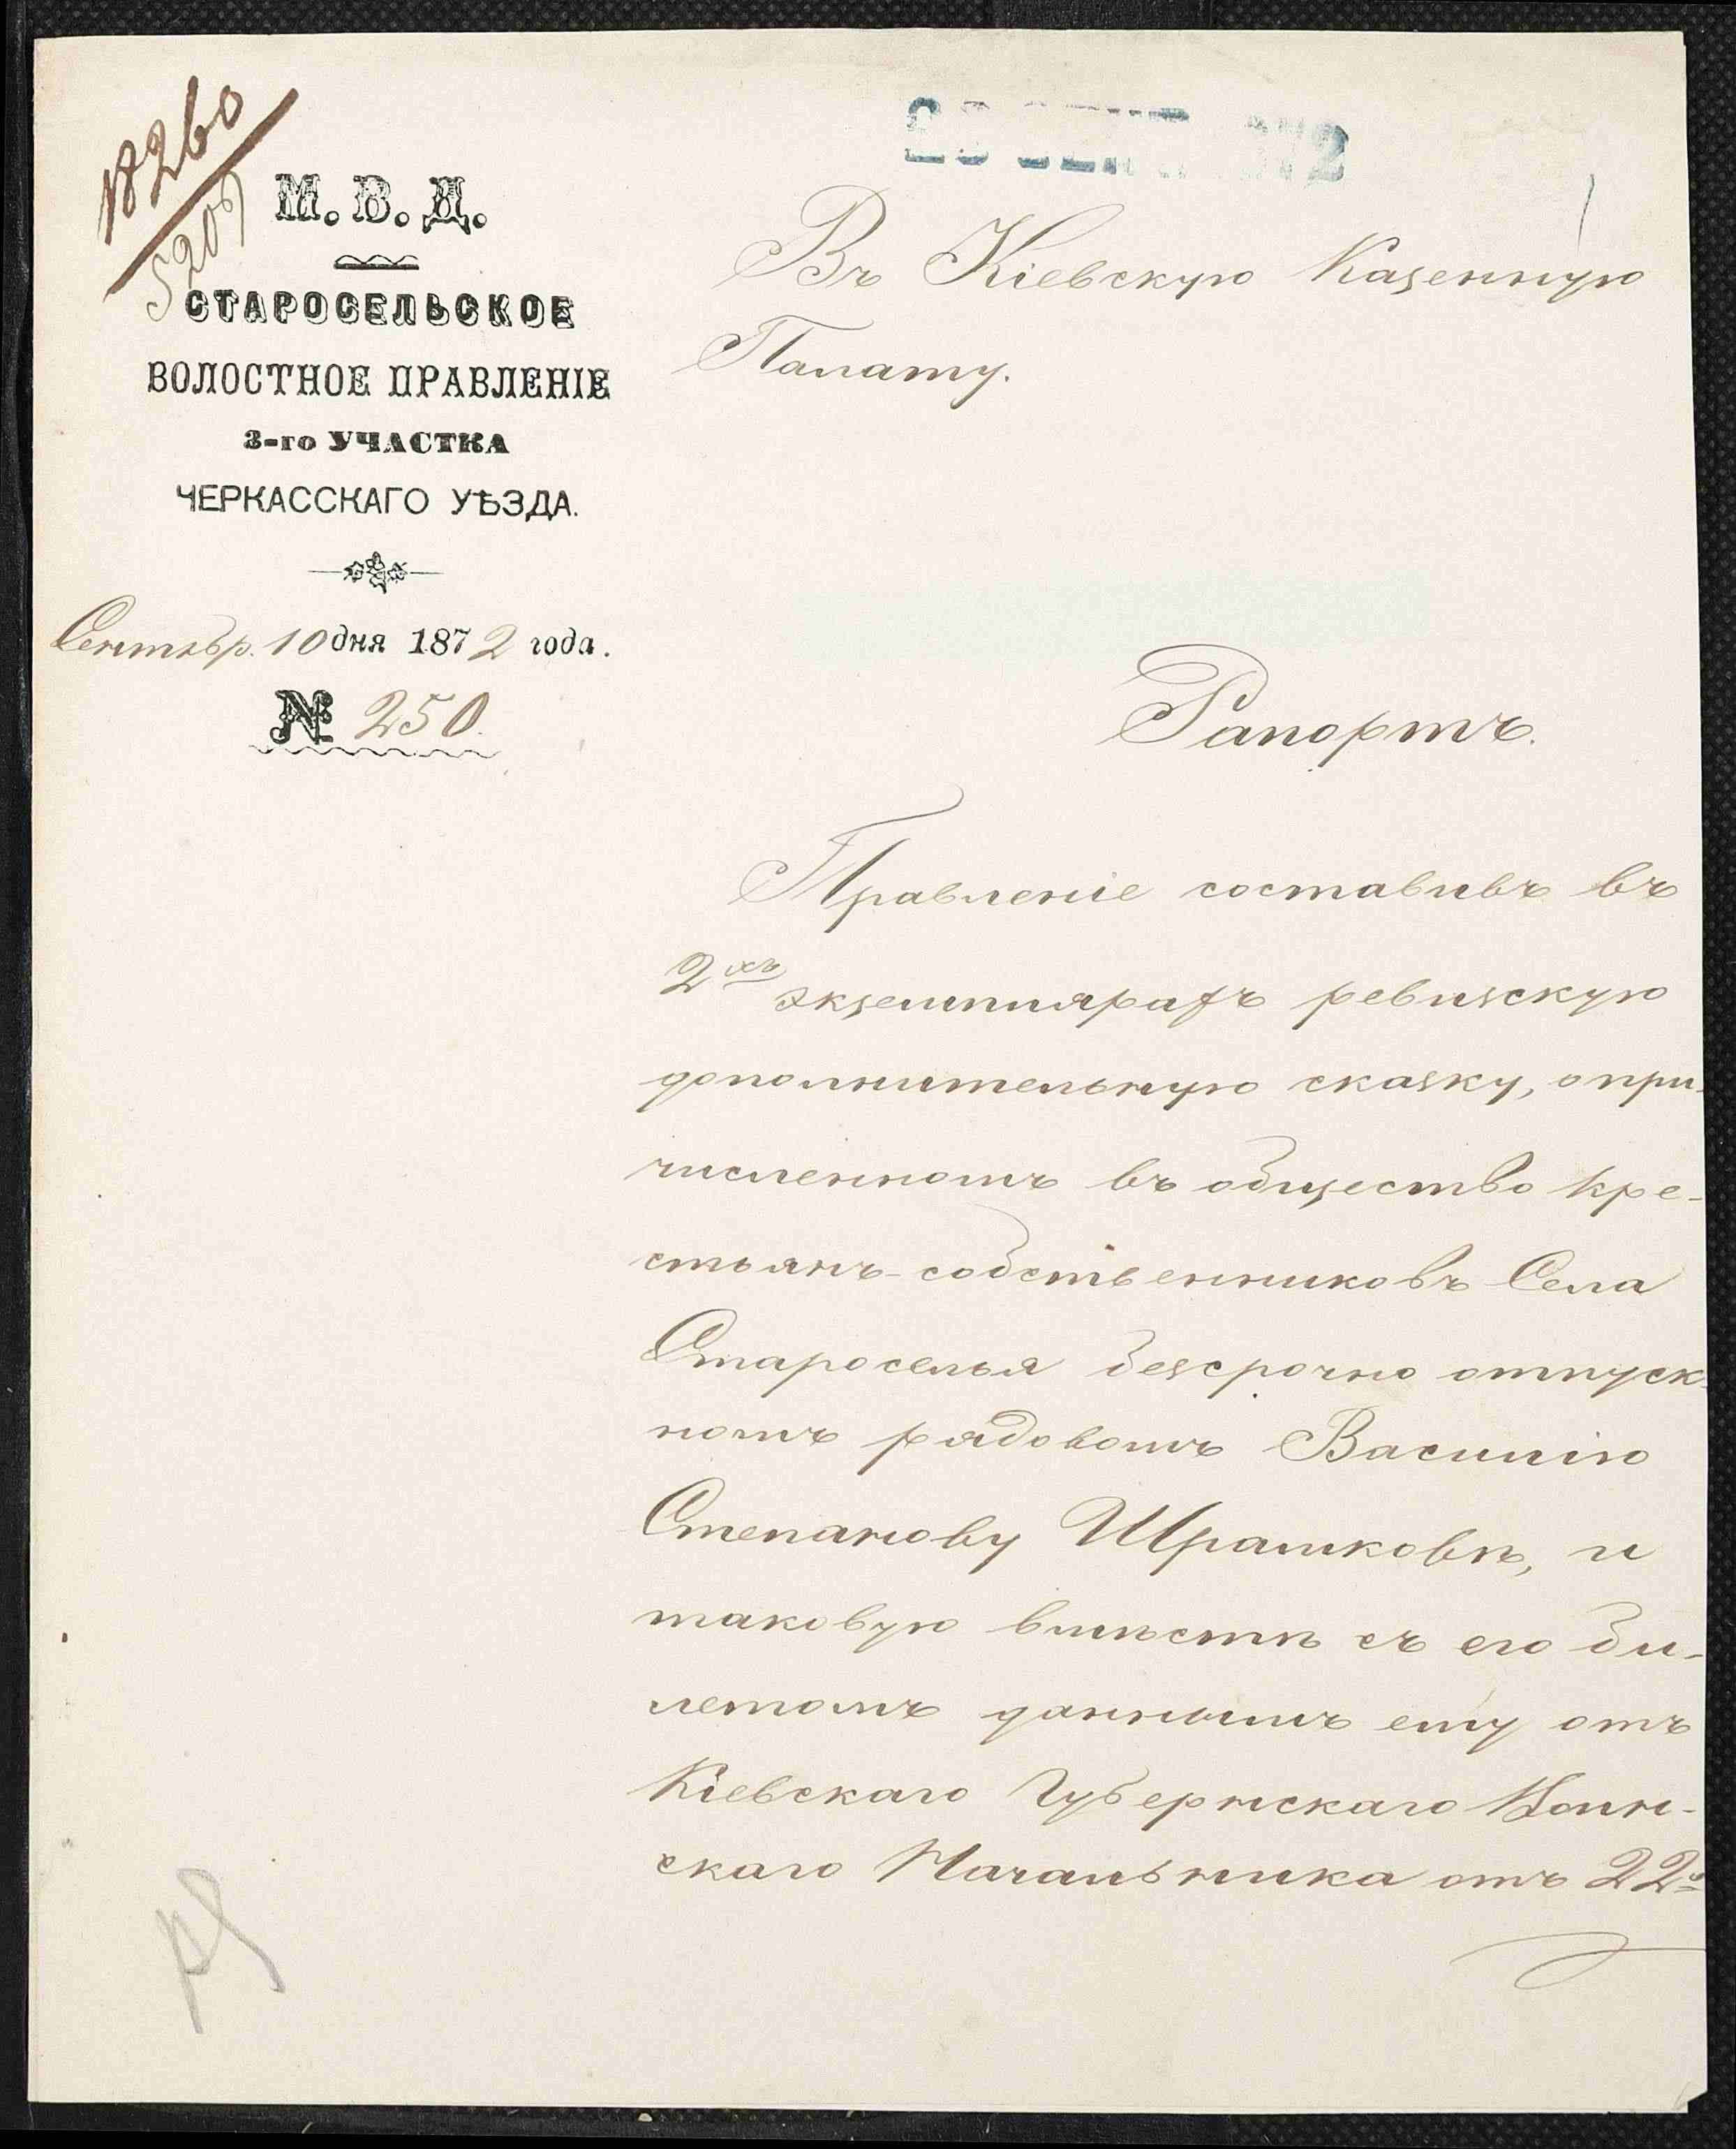 18260
5209
М. В. Д.
СТАРОСЕЛЬСКОЕ
ВОЛОСТНОЕ ПРАВЛЕНІЕ
3-го УЧАСТКА
ЧЕРКАССКАГО УѢЗДА.
Сентябр. 10 дня 1872 года.
№ 250.
Въ Кіевскую Казенную
Палату.
Рапортъ.
Правленіе составивъ въ
2хъ экземплярахъ ревизскую
дополнительную сказку, о при-
численномъ въ общество кре-
стьянъ-собственниковъ Села
Староселья безсрочно отпуск-
номъ рядовомъ Василію
Степанову Шрамковѣ, и
таковую вмѣстѣ съ его би-
летомъ даннымъ ему отъ
Кіевскаго Губернскаго Воин-
скаго Начальника отъ 22го